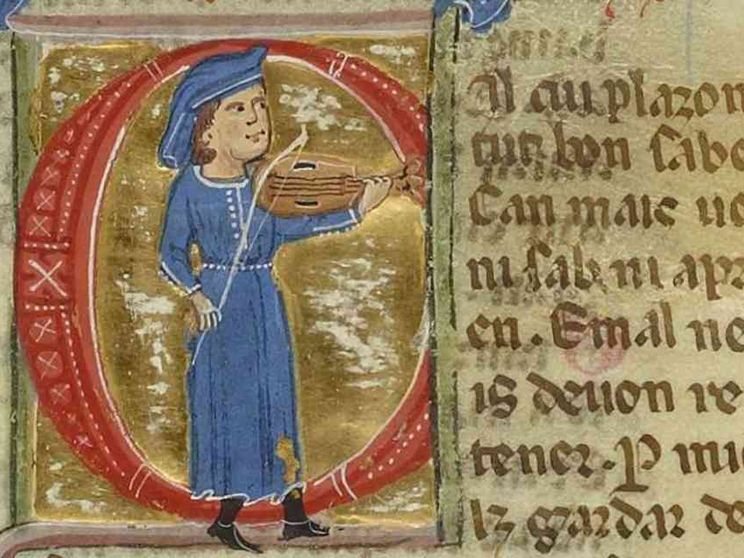 Al cui plazon
tutz bon sabe
Can mais uo
ni sab ni apr
en. E mal ne
is deuon re
tener. P mi
lz gardar de